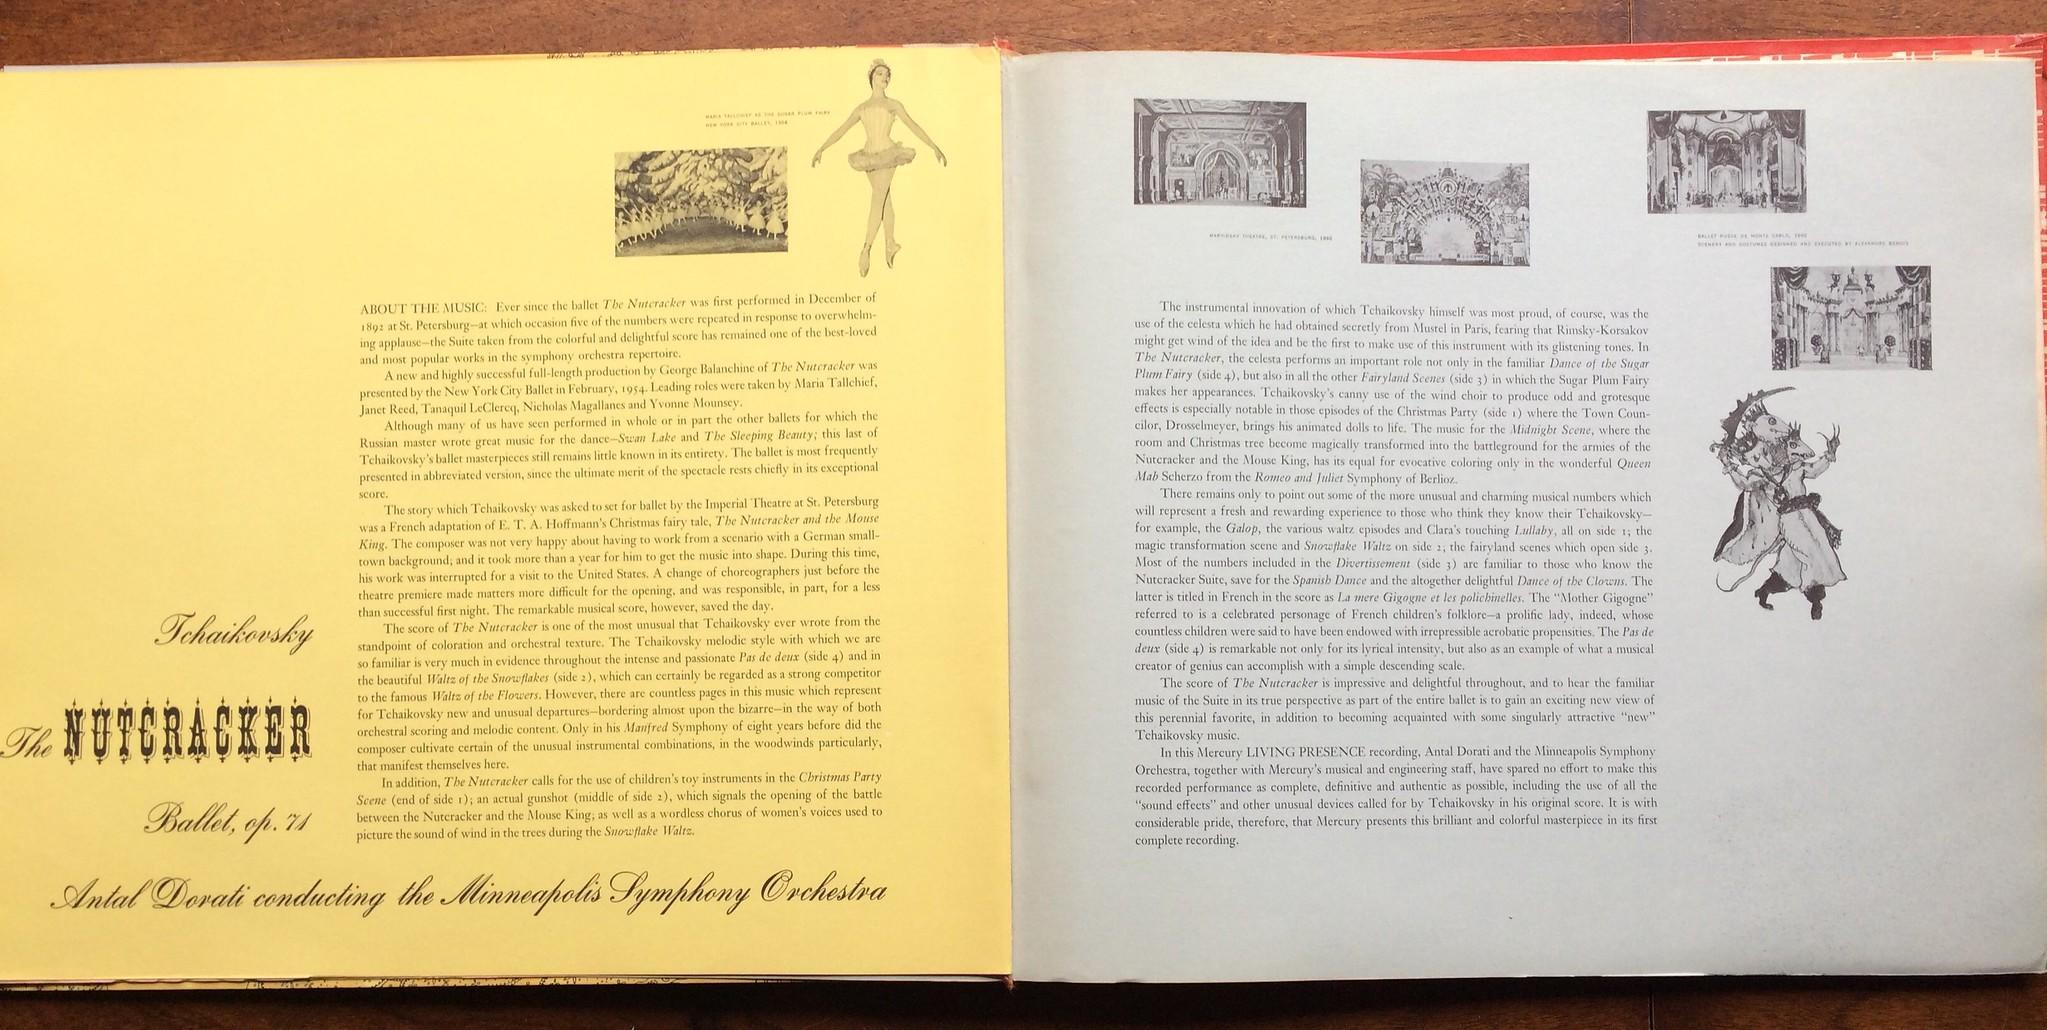 MARIA TALLCHIEF AS THE SUGAR PLUM FAIRY
NEW YORK CITY BALLET, 1954
ABOUT THE MUSIC: Ever since the ballet The Nutcracker was first performed in December of
1892 at St. Petersburg—at which occasion five of the numbers were repeated in response to overwhelm-
ing applause—the Suite taken from the colorful and delightful score has remained one of the best-loved
and most popular works in the symphony orchestra repertoire.
A new and highly successful full-length production by George Balanchine of The Nutcracker was
presented by the New York City Ballet in February, 1954. Leading roles were taken by Maria Tallchief,
Janet Reed, Tanaquil LeClercq, Nicholas Magallanes and Yvonne Mounsey.
Although many of us have seen performed in whole or in part the other ballets for which the
Russian master wrote great music for the dance—Swan Lake and The Sleeping Beauty; this last of
Tchaikovsky's ballet masterpieces still remains little known in its entirety. The ballet is most frequently
presented in abbreviated version, since the ultimate merit of the spectacle rests chiefly in its exceptional
score.
The story which Tchaikovsky was asked to set for ballet by the Imperial Theatre at St. Petersburg
was a French adaptation of E. T. A. Hoffmann's Christmas fairy tale, The Nutcracker and the Mouse
King. The composer was not very happy about having to work from a scenario with a German small-
town background; and it took more than a year for him to get the music into shape. During this time,
his work was interrupted for a visit to the United States. A change of choreographers just before the
theatre premiere made matters more difficult for the opening, and was responsible, in part, for a less
than successful first night. The remarkable musical score, however, saved the day.
The score of The Nutcracker is one of the most unusual that Tchaikovsky ever wrote from the
standpoint of coloration and orchestral texture. The Tchaikovsky melodic style with which we are
so familiar is very much in evidence throughout the intense and passionate Pas de deux (side 4) and in
the beautiful Waltz of the Snowflakes (side 2), which can certainly be regarded as a strong competitor
to the famous Waltz of the Flowers. However, there are countless pages in this music which represent
for Tchaikovsky new and unusual departures—bordering almost upon the bizarre—in the way of both
orchestral scoring and melodic content. Only in his Manfred Symphony of eight years before did the
composer cultivate certain of the unusual instrumental combinations, in the woodwinds particularly,
that manifest themselves here.
In addition, The Nutcracker calls for the use of children's toy instruments in the Christmas Party
Scene (end of side 1); an actual gunshot (middle of side 2), which signals the opening of the battle
between the Nutcracker and the Mouse King; as well as a wordless chorus of women's voices used to
picture the sound of wind in the trees during the Snowflake Waltz.
Tchaikovsky
The NUTCRACKER
Ballet, op. 71
Antal Dorati conducting the Minneapolis Symphony Orchestra
MARYINSKY THEATRE, ST. PETERSBURG, 1892
BALLET RUSSE DE MONTE CARLO, 1940
SCENERY AND COSTUMES DESIGNED AND EXECUTED BY ALEXANDRE BENOIS
The instrumental innovation of which Tchaikovsky himself was most proud, of course, was the
use of the celesta which he had obtained secretly from Mustel in Paris, fearing that Rimsky-Korsakov
might get wind of the idea and be the first to make use of this instrument with its glistening tones. In
The Nutcracker, the celesta performs an important role not only in the familiar Dance of the Sugar
Plum Fairy (side 4), but also in all the other Fairyland Scenes (side 3) in which the Sugar Plum Fairy
makes her appearances. Tchaikovsky's canny use of the wind choir to produce odd and grotesque
effects is especially notable in those episodes of the Christmas Party (side 1) where the Town Coun-
cilor, Drosselmeyer, brings his animated dolls to life. The music for the Midnight Scene, where the
room and Christmas tree become magically transformed into the battleground for the armies of the
Nutcracker and the Mouse King, has its equal for evocative coloring only in the wonderful Queen
Mab Scherzo from the Romeo and Juliet Symphony of Berlioz.
There remains only to point out some of the more unusual and charming musical numbers which
will represent a fresh and rewarding experience to those who think they know their Tchaikovsky—
for example, the Galop, the various waltz episodes and Clara's touching Lullaby, all on side 1; the
magic transformation scene and Snowflake Waltz on side 2; the fairyland scenes which open side 3.
Most of the numbers included in the Divertissement (side 3) are familiar to those who know the
Nutcracker Suite, save for the Spanish Dance and the altogether delightful Dance of the Clowns. The
latter is titled in French in the score as La mere Gigogne et les polichinelles. The "Mother Gigogne"
referred to is a celebrated personage of French children's folklore—a prolific lady, indeed, whose
countless children were said to have been endowed with irrepressible acrobatic propensities. The Pas de
deux (side 4) is remarkable not only for its lyrical intensity, but also as an example of what a musical
creator of genius can accomplish with a simple descending scale.
The score of The Nutcracker is impressive and delightful throughout, and to hear the familiar
music of the Suite in its true perspective as part of the entire ballet is to gain an exciting new view of
this perennial favorite, in addition to becoming acquainted with some singularly attractive "new"
Tchaikovsky music.
In this Mercury LIVING PRESENCE recording, Antal Dorati and the Minneapolis Symphony
Orchestra, together with Mercury's musical and engineering staff, have spared no effort to make this
recorded performance as complete, definitive and authentic as possible, including the use of all the
"sound effects" and other unusual devices called for by Tchaikovsky in his original score. It is with
considerable pride, therefore, that Mercury presents this brilliant and colorful masterpiece in its first
complete recording.